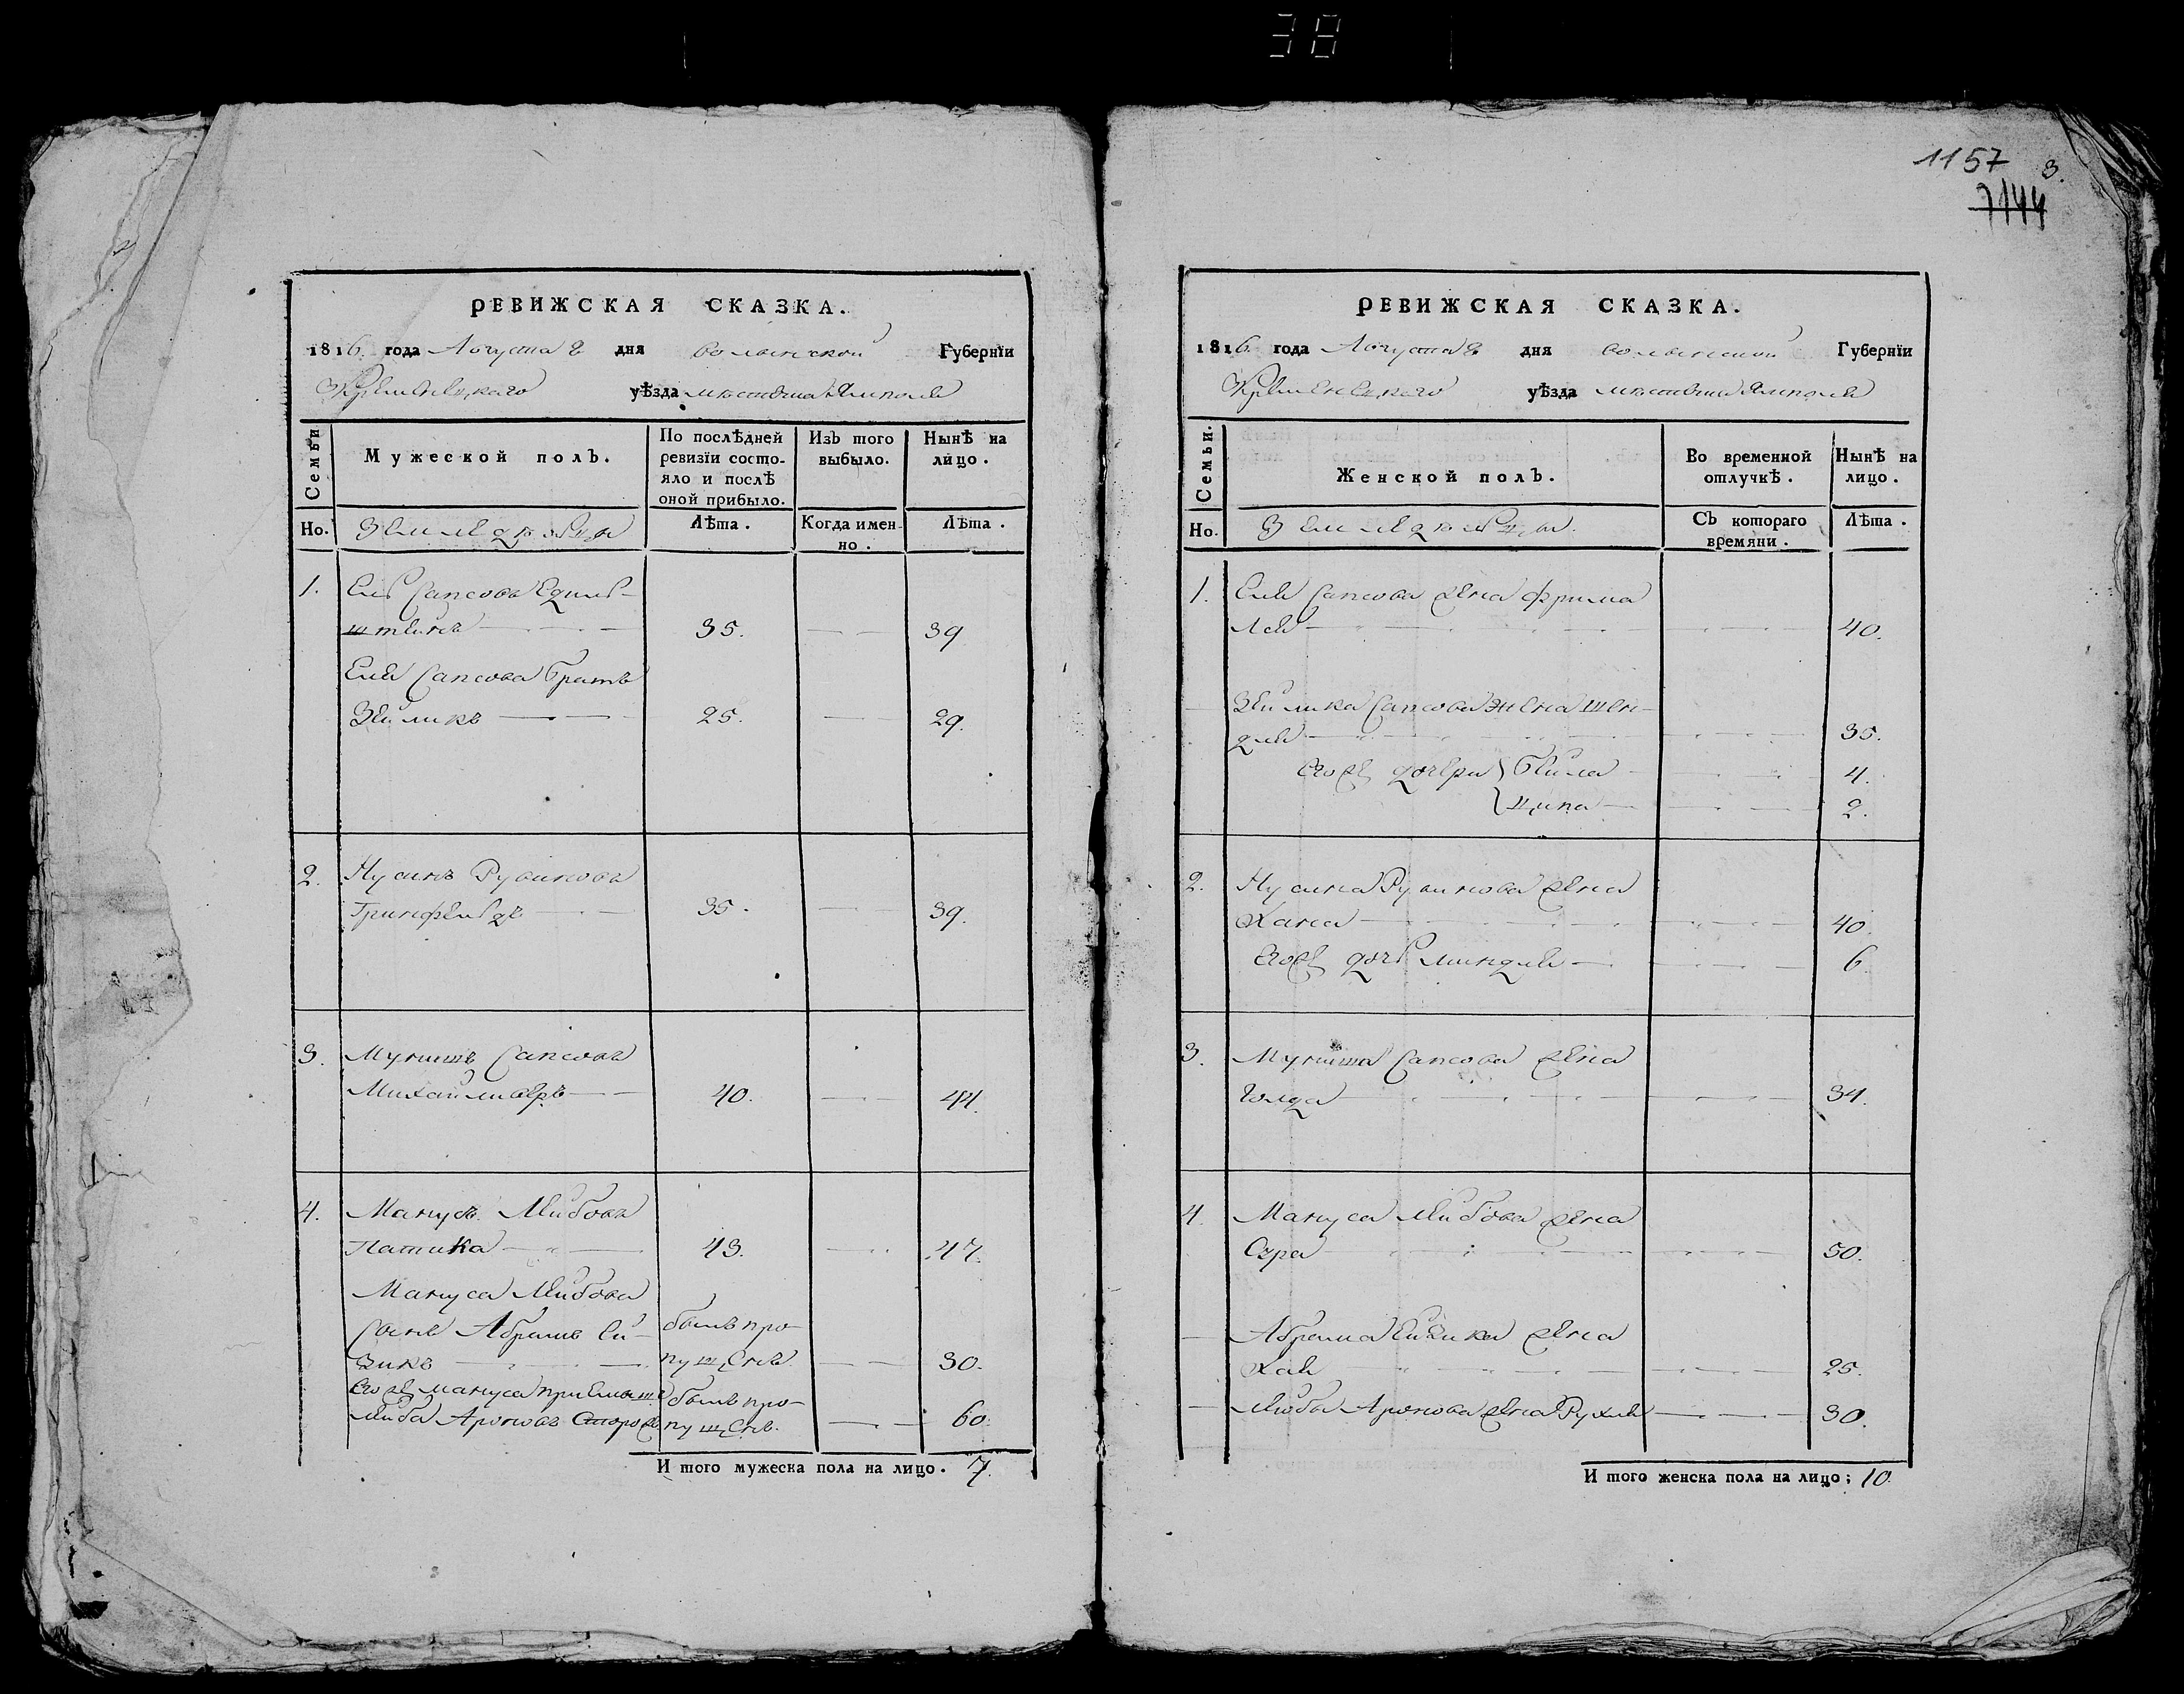 38
1157 3.
7144
РЕВИЖСКАЯ СКАЗКА.
1816 года Августа 8 дня Волынской Губернїи
Кременецкаго уѣзда мѣстечка Ямполя
Семьи
Мужеской полъ.
По послѣдней ревизїи состо-
яло и послѣ
оной прибыло.
Изъ того выбыло.
Нынѣ на лицо.
Но.
Земледѣльцы
Лѣта.
Когда имен-
но.
Лѣта.
1. Ель Сапсовъ Едиль-
штейнъ 35. 39
Еля Сапсова братъ
Зейликъ 25. 29.
2. Нусинъ Рувиновъ
Гринфельдъ 35. 39.
3. Мунишъ Сапсовъ
Михайливеръ 40. 44.
4. Манусъ Лейбовъ
Патика 43. 47.
Мануса Лейбова
Сынъ Абрамъ Ей- былъ про-
зикъ пущенъ 30.
Егожъ Мануса приемышъ былъ про-
Лейба Ароновъ пущенъ. 60.
И того мужеска пола на лицо. 7.
РЕВИЖСКАЯ СКАЗКА.
1816. года Августа 8 дня Волынской Губернїи
Кременецкаго уѣзда мѣстечка Ямполя
Семьи.
Женской полъ.
Во временной
отлучкѣ.
Нынѣ на
лицо.
Но.
Земледѣльцы.
Съ котораго
времяни.
Лѣта.
1. Еля Сапсова жена Фрима
Лея 40.
Зейлика Сапсова жена Шен-
для 35.
Егожъ дочери Бейла 4.
Ципа 2.
2. Нусина Рувинова жена
Хана 40.
Егожъ дочь Миндля 6
3. Муниша Сапсова жена
Голда 34.
4. Мануса Лейбова жена
Сура 50.
Абрама Ейзика жена
Хая 25.
Лейбы Аронова жена Рухля 30.
И того женска пола на лицо; 10.